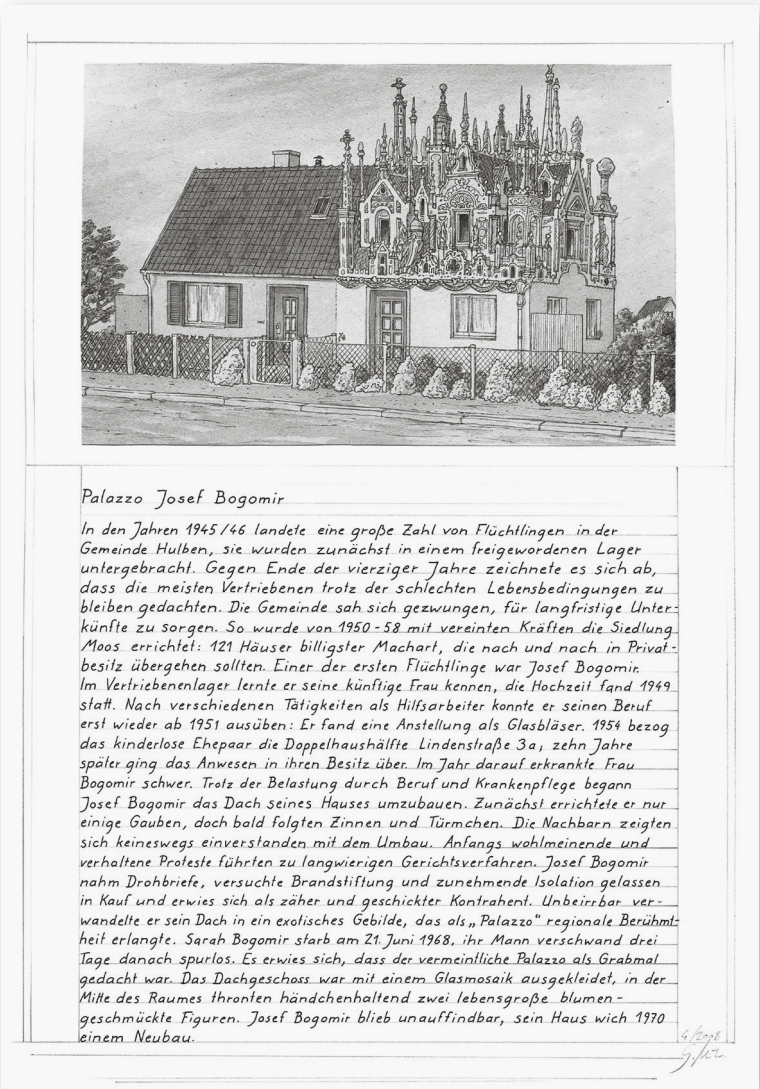 Palazzo Josef Bogomir
In den Jahren 1945/46 landete eine große Zahl von Flüchtlingen in der
Gemeinde Hulben, sie wurden zunächst in einem freigewordenen Lager
untergebracht. Gegen Ende der vierziger Jahre zeichnete es sich ab,
dass die meisten Vertriebenen trotz der schlechten Lebensbedingungen zu
bleiben gedachten. Die Gemeinde sah sich gezwungen, für langfristige Unter-
künfte zu sorgen. So wurde von 1950-58 mit vereinten Kräften die Siedlung
Moos errichtet: 121 Häuser billigster Machart, die nach und nach in Privat-
besitz übergehen sollten. Einer der ersten Flüchtlinge war Josef Bogomir.
Im Vertriebenenlager lernte er seine künftige Frau kennen, die Hochzeit fand 1949
statt. Nach verschiedenen Tätigkeiten als Hilfsarbeiter konnte er seinen Beruf
erst wieder ab 1951 ausüben: Er fand eine Anstellung als Glasbläser. 1954 bezog
das kinderlose Ehepaar die Doppelhaushälfte Lindenstraße 3a; zehn Jahre
später ging das Anwesen in ihren Besitz über. Im Jahr darauf erkrankte Frau
Bogomir schwer. Trotz der Belastung durch Beruf und Krankenpflege begann
Josef Bogomir das Dach seines Hauses umzubauen. Zunächst errichtete er nur
einige Gauben, doch bald folgten Zinnen und Türmchen. Die Nachbarn zeigten
sich keineswegs einverstanden mit dem Umbau. Anfangs wohlmeinende und
verhaltene Proteste führten zu langwierigen Gerichtsverfahren. Josef Bogomir
nahm Drohbriefe, versuchte Brandstiftung und zunehmende Isolation gelassen
in Kauf und erwies sich als zäher und geschickter Kontrahent. Unbeirrbar ver-
wandelte er sein Dach in ein exotisches Gebilde, das als „Palazzo“ regionale Berühmt-
heit erlangte. Sarah Bogomir starb am 21. Juni 1968, ihr Mann verschwand drei
Tage danach spurlos. Es erwies sich, dass der vermeintliche Palazzo als Grabmal
gedacht war. Das Dachgeschoss war mit einem Glasmosaik ausgekleidet, in der
Mitte des Raumes thronten händchenhaltend zwei lebensgroße blumen-
geschmückte Figuren. Josef Bogomir blieb unauffindbar, sein Haus wich 1970
einem Neubau.